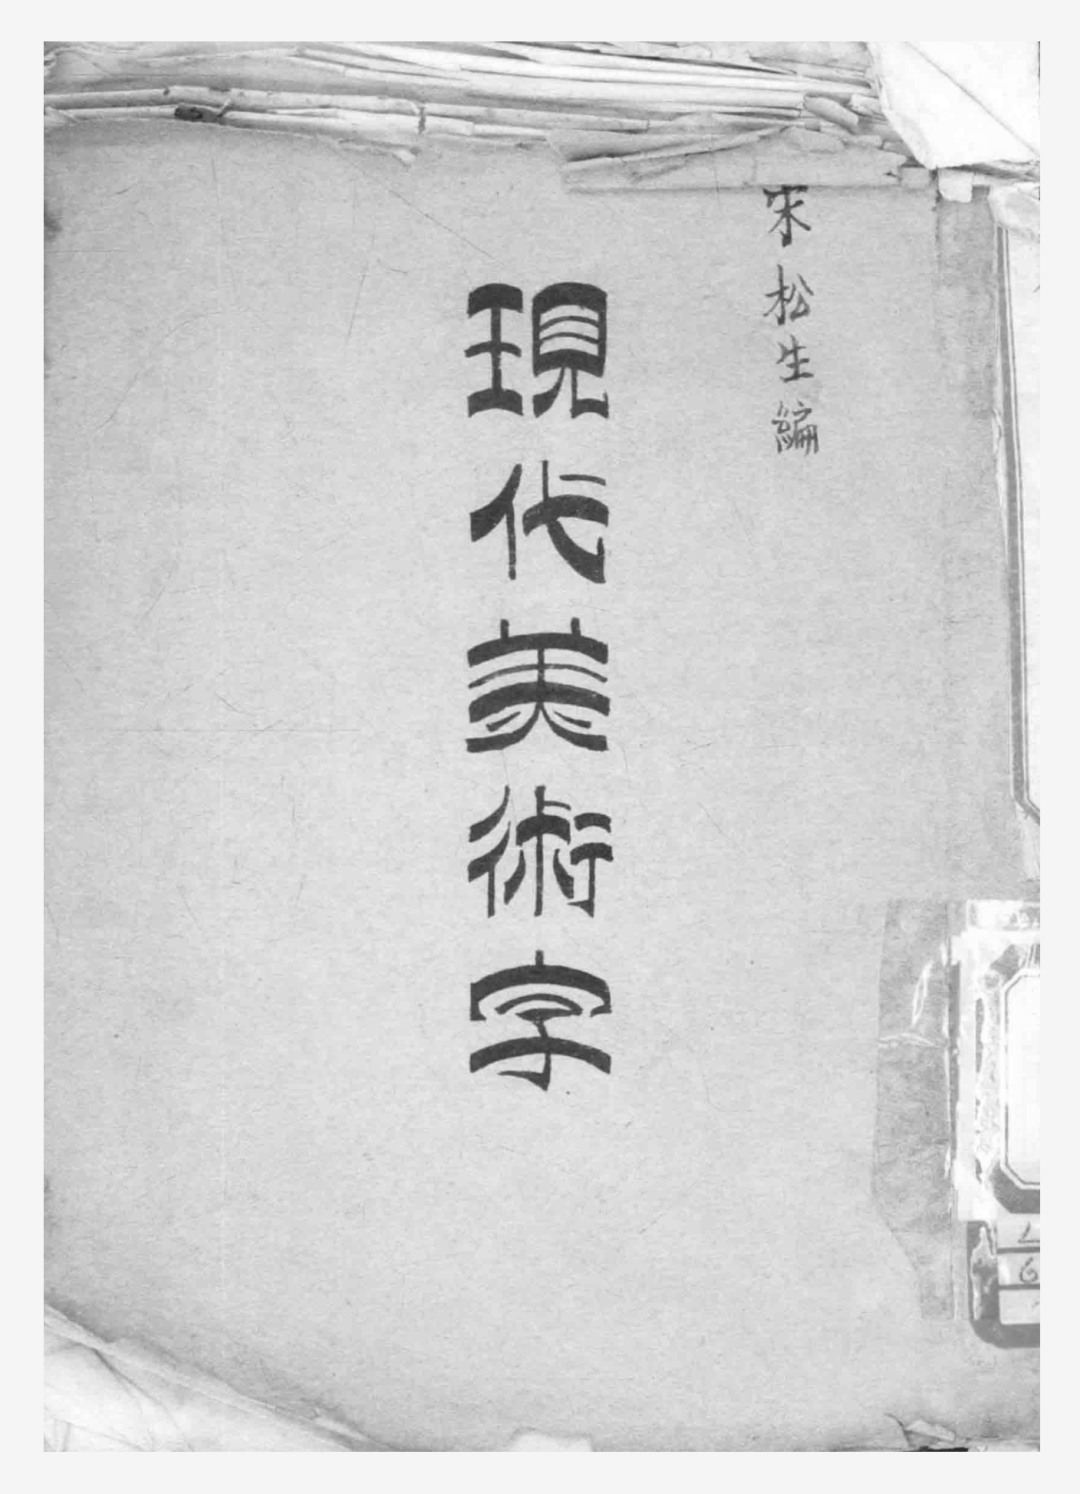 宋松生編
現代美術字
L
6